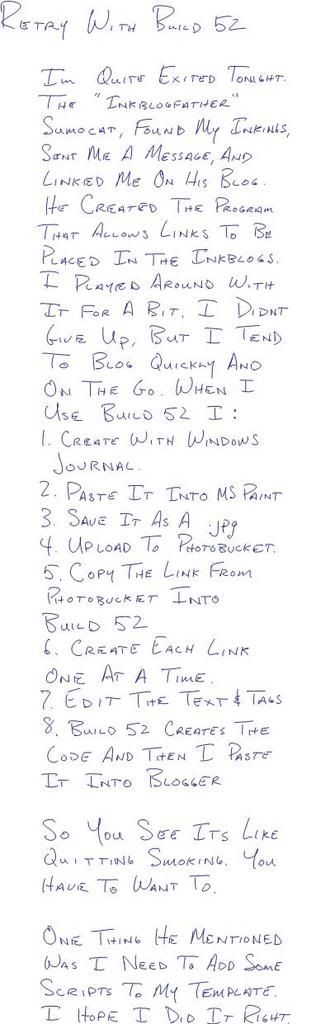 Retry With Build 52
Im Quite Exited Tonight.
The "Inkblogfather"
Sumocat, Found My Inkings,
Sent Me A Message, And
Linked Me On His Blog.
He Created The Program
That Allows Links To Be
Placed In The Inkblogs.
I Played Around With
It For A Bit. I Didnt
Give Up, But I Tend
To Blog Quickly And
On The Go. When I
Use Build 52 I:
1. Create With Windows
Journal.
2. Paste It Into MS Paint
3. Save It As A .jpg
4. Upload To Photobucket.
5. Copy The Link From
Photobucket Into
Build 52
6. Create Each Link
One At A Time.
7. Edit The Text & Tags
8. Build 52 Creates The
Code And Then I Paste
It Into Blogger
So You See Its Like
Quitting Smoking. You
Have To Want To.
One Thing He Mentioned
Was I Need To Add Some
Scripts To My Template.
I Hope I Did It Right.